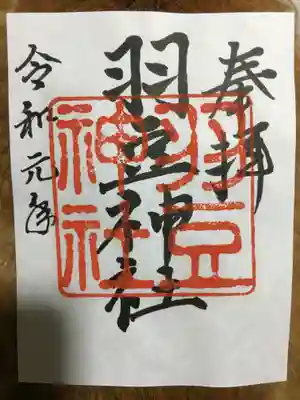 奉拝
羽豆神社
羽豆
神社
令和元年